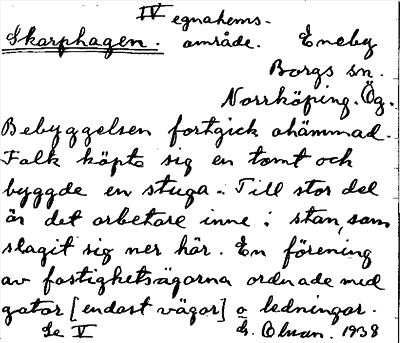 IV egnahems-
Skarphagen. område. Eneby
Borgs sn.
Norrköping. Ög.
Bebyggelsen fortgick ohämmad.
Folk köpte sig en tomt och
byggde en stuga. Till stor del
är det arbetare inne i stan, som
slagit sig ner här. En förening
av fastighetsägarna ordnade med
gator [endast vägar] o ledningar.
Se V 1938